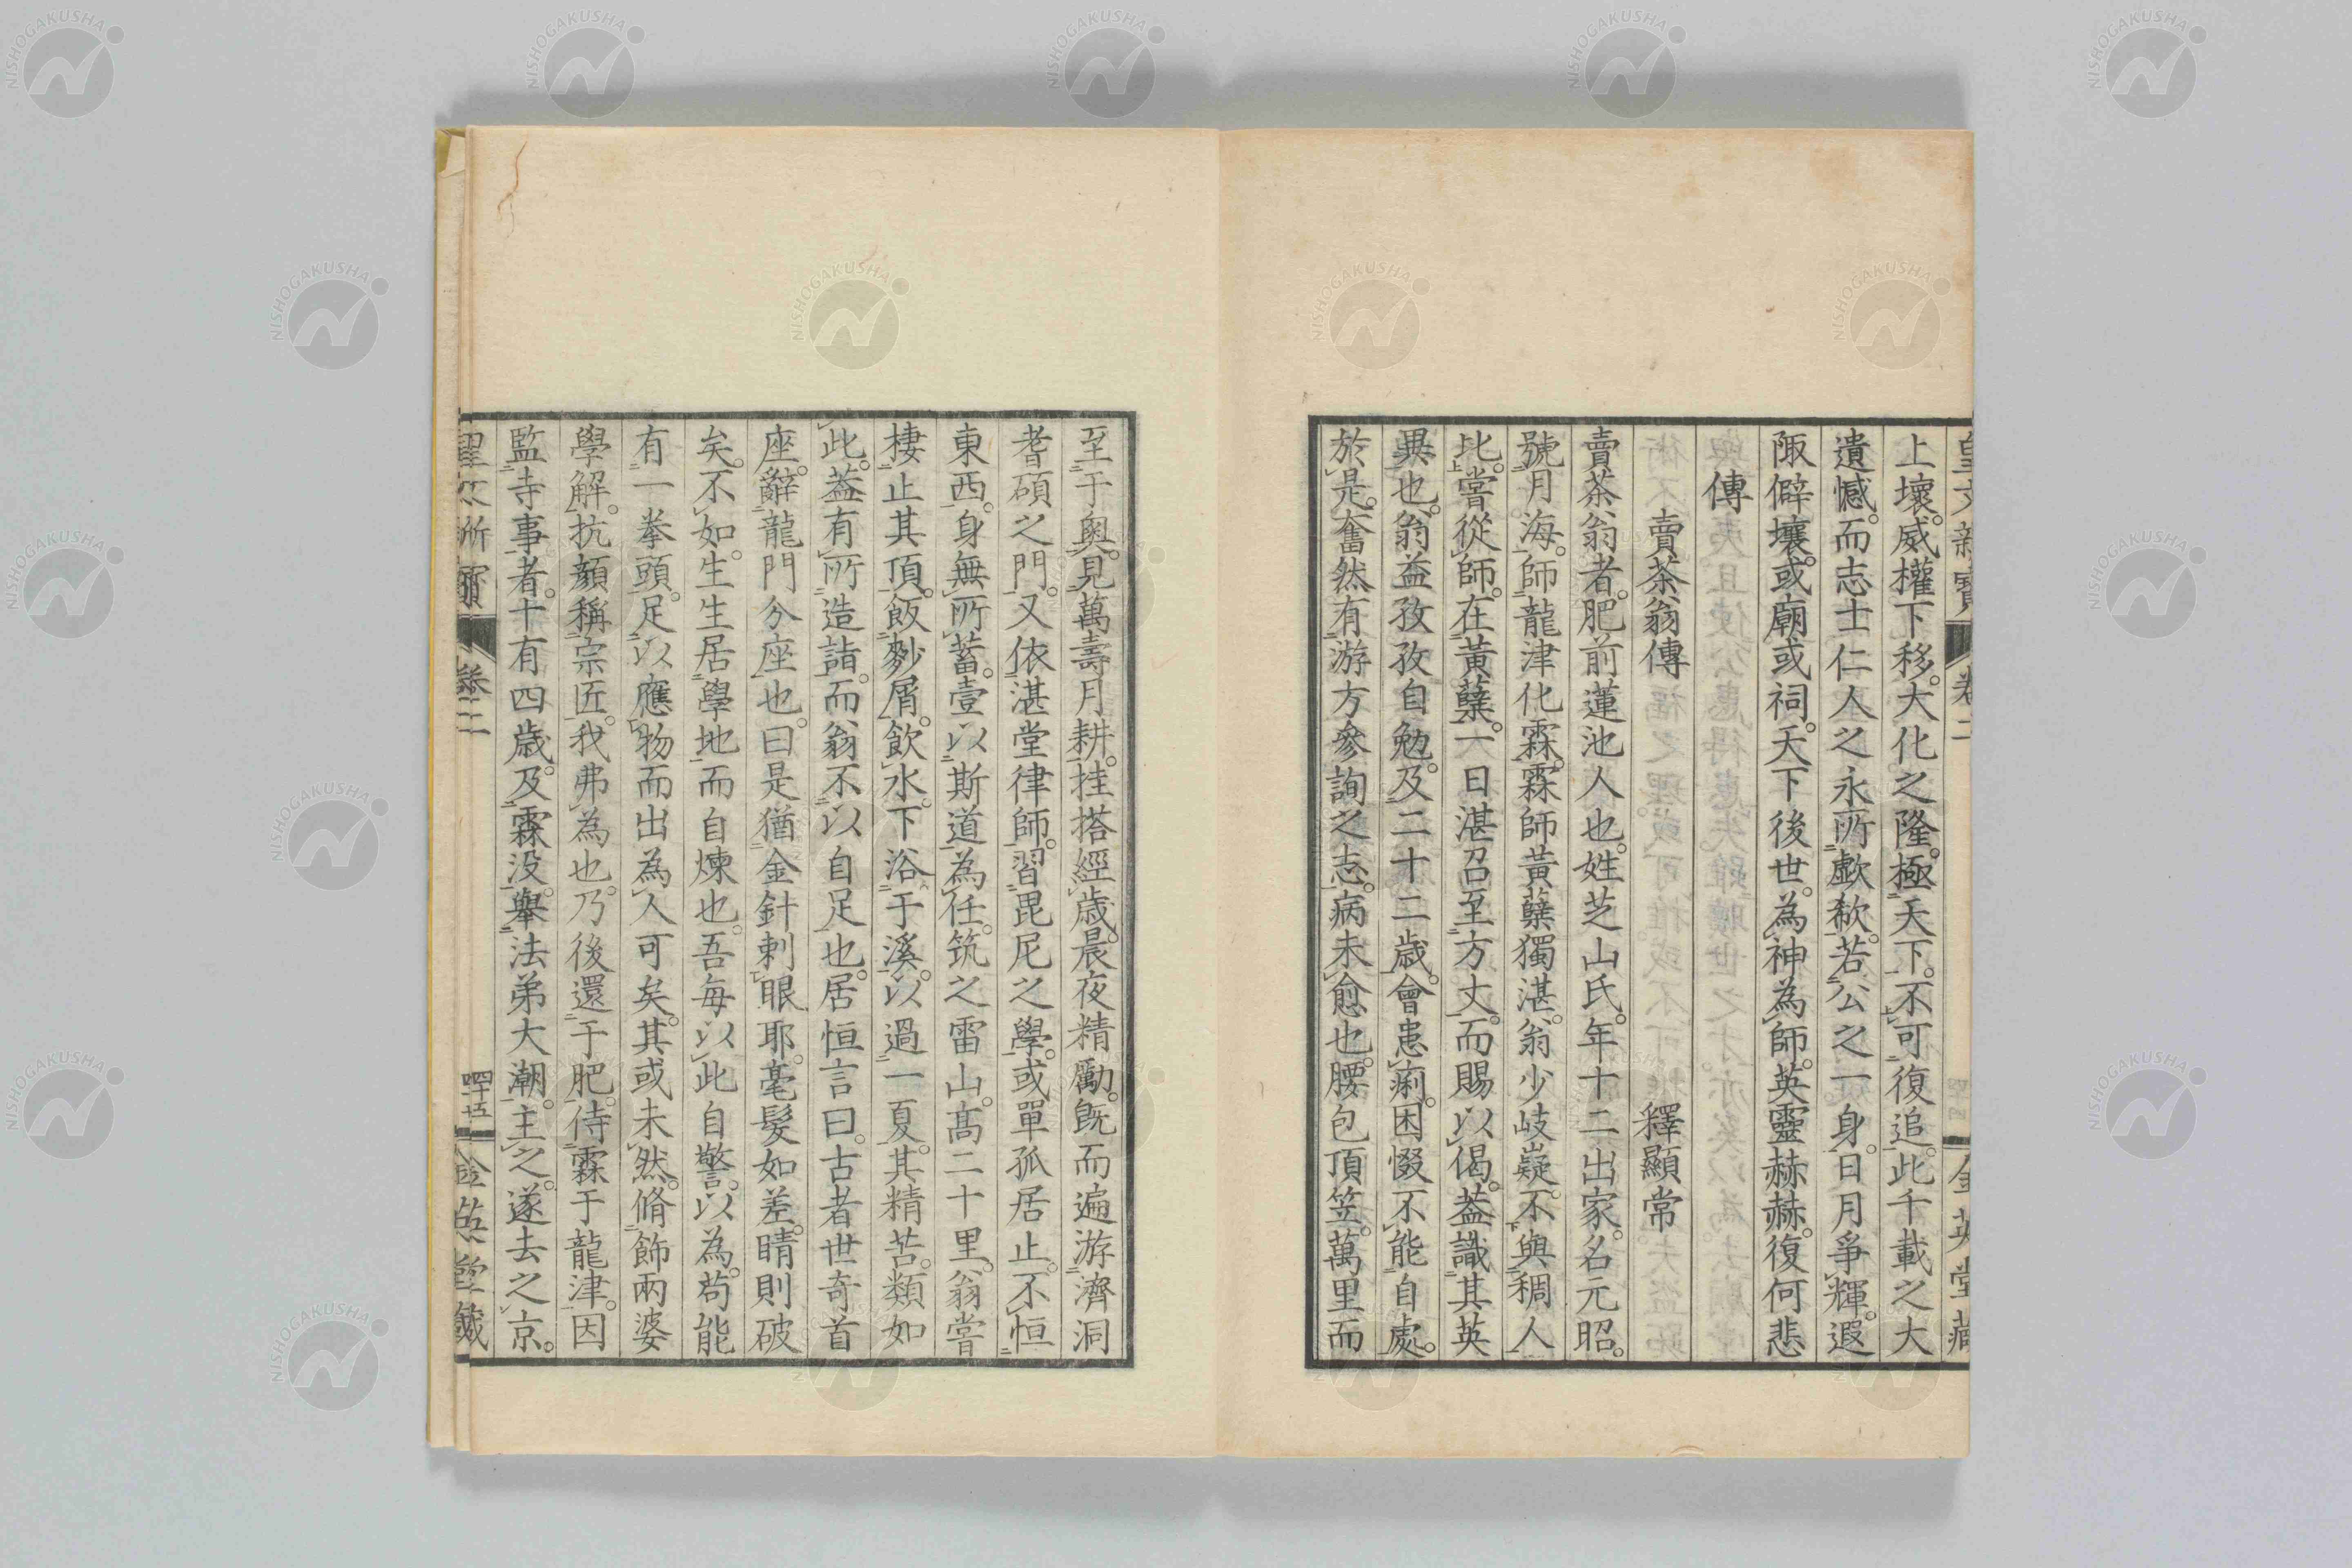 上壞。威權下移。大化之隆。極天下。不可復追。此千載之大
遺憾。而志士仁人之永所歔欷。若公之一身。日月爭輝。遐
陬僻壤。或廟或祠。天下後世。為神為師。英靈赫赫。復何悲
傳
賣茶翁傳 釋顯常
賣茶翁者。肥前蓮池人也。姓芝山氏。年十二出家。名元昭。
號月海。師龍津化霖。霖師黃蘗獨湛。翁少岐嶷。不與稠人
比。嘗從師。在黃蘗。一日湛召至方丈。而賜以偈。蓋識其英
異也。翁益孜孜自勉。及二十二歲。會患痢。困惙不能自處。
於是。奮然有游方參詢之志。病未愈也。腰包頂笠。萬里而
至于奧。見萬壽月耕。挂搭經歲。晨夜精勵。既而遍游濟洞
耆碩之門。又依湛堂律師。習毘尼之學。或單孤居止。不恒
東西。身無所蓄。壹以斯道為任。筑之雷山。高二十里。翁嘗
棲止其頂。飯麨屑。飲水。下浴于溪。以過一夏。其精苦。類如
此。蓋有所造詣。而翁不以自足也。居恒言曰。古者世奇首
座。辭龍門分座也。曰是猶金針刺眼耶。毫髮如差。睛則破
矣。不如。生生居學地而自煉也。吾每以此自警。以為。苟能
有一拳頭。足以應物而出為人可矣。其或未然。脩飾兩婆
學解。抗顏稱宗匠。我弗為也。乃後還于肥。侍霖于龍津。因
監寺事者。十有四歲。及霖沒。舉法弟大潮。主之。遂去之京。
皇文新寶 卷二 金英堂藏
卷二 四十五 金英堂藏
NISHOGAKUSHA